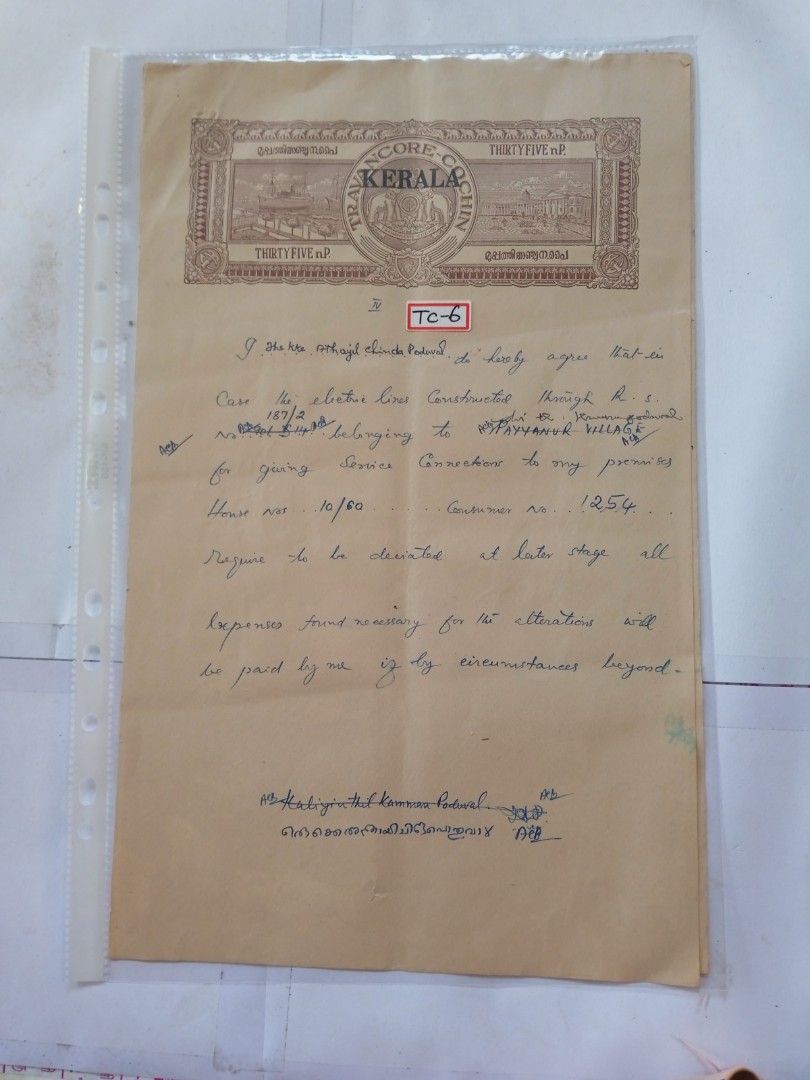 മുപ്പത്തിഅഞ്ചു ന.പൈ THIRTY FIVE nP.
TRAVANCORE-COCHIN
KERALA
THIRTY FIVE nP. മുപ്പത്തിഅഞ്ചു ന.പൈ
IV
TC-6
I, Thekke Athayil Chinda Poduval. do hereby agree that in
Case the electric lines Constructed through R. S.
187/2
No. belonging to PAYYANUR VILLAGE
for giving Service Connections to my premises
House Nos ...10/60....... Consumer No...1254...
Require to be deviated at later stage all
Expenses found necessary for the alterations will
be paid by me if by circumstances beyond-
Kaliyinthil Kamman Poduval.